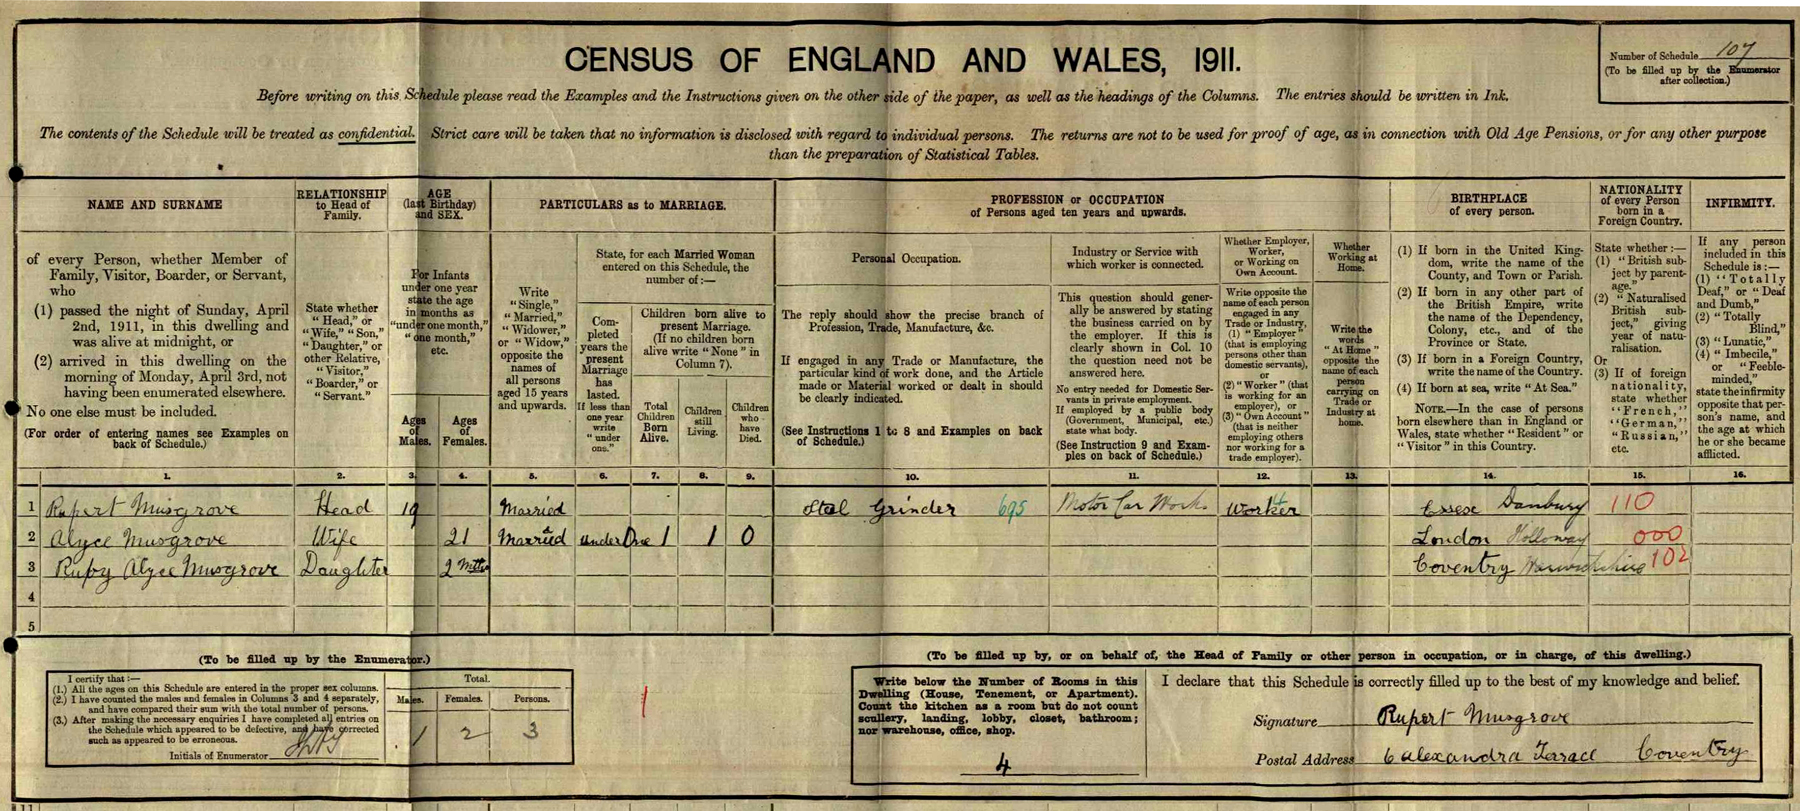 CENSUS OF ENGLAND AND WALES, 1911.
Number of Schedule 107
(To be filled up by the Enumerator
after collection.)
Before writing on this Schedule please read the Examples and the Instructions given on the other side of the paper, as well as the headings of the Columns. The entries should be written in Ink.
The contents of the Schedule will be treated as confidential. Strict care will be taken that no information is disclosed with regard to individual persons. The returns are not to be used for proof of age, as in connection with Old Age Pensions, or for any other purpose
than the preparation of Statistical Tables.
NAME AND SURNAME
of every Person, whether Member of
Family, Visitor, Boarder, or Servant,
who
(1) passed the night of Sunday, April
2nd, 1911, in this dwelling and
was alive at midnight, or
(2) arrived in this dwelling on the
morning of Monday, April 3rd, not
having been enumerated elsewhere.
No one else must be included.
(For order of entering names see Examples on
back of Schedule.)
RELATIONSHIP
to Head of
Family.
State whether
"Head," or
"Wife," "Son,"
"Daughter," or
other Relative,
"Visitor,"
"Boarder," or
"Servant."
AGE
(last Birthday)
and SEX.
For Infants
under one year
state the age
in months as
"under one month,"
"one month,"
etc.
Ages
of
Males.
Ages
of
Females.
PARTICULARS as to MARRIAGE.
Write
"Single,"
"Married,"
"Widower,"
or "Widow,"
opposite the
names of
all persons
aged 15 years
and upwards.
State, for each Married Woman
entered on this Schedule, the
number of :—
Com-
pleted
years the
present
Marriage
has
lasted.
If less than
one year
write
"under
one."
Children born alive to
present Marriage.
(If no children born
alive write "None" in
Column 7).
Total
Children
Born
Alive.
Children
still
Living.
Children
who
have
Died.
PROFESSION or OCCUPATION
of Persons aged ten years and upwards.
Personal Occupation.
The reply should show the precise branch of
Profession, Trade, Manufacture, &c.
If engaged in any Trade or Manufacture, the
particular kind of work done, and the Article
made or Material worked or dealt in should
be clearly indicated.
(See Instructions 1 to 8 and Examples on back
of Schedule.)
Industry or Service with
which worker is connected.
This question should gener-
ally be answered by stating
the business carried on by
the employer. If this is
clearly shown in Col. 10
the question need not be
answered here.
No entry needed for Domestic Ser-
vants in private employment.
If employed by a public body
(Government, Municipal, etc.)
state what body.
(See Instruction 9 and Exam-
ples on back of Schedule.)
Whether Employer,
Worker,
or Working on
Own Account.
Write opposite the
name of each person
engaged in any
Trade or Industry,
(1) "Employer"
(that is employing
persons other than
domestic servants),
or
(2) "Worker" (that
is working for an
employer), or
(3) "Own Account"
(that is neither
employing others
nor working for a
trade employer).
Whether
Working at
Home.
Write the
words
"At Home"
opposite the
name of each
person
carrying on
Trade or
Industry at
home.
BIRTHPLACE
of every person.
(1) If born in the United King-
dom, write the name of the
County, and Town or Parish.
(2) If born in any other part of
the British Empire, write
the name of the Dependency,
Colony, etc., and of the
Province or State.
(3) If born in a Foreign Country,
write the name of the Country.
(4) If born at sea, write "At Sea."
NOTE.—In the case of persons
born elsewhere than in England or
Wales, state whether "Resident" or
"Visitor" in this Country.
NATIONALITY
of every Person
born in a
Foreign Country.
State whether :—
(1) "British sub-
ject by parent-
age."
(2) "Naturalised
British sub-
ject," giving
year of natu-
ralisation.
Or
(3) If of foreign
nationality,
state whether
"French,"
"German,"
"Russian,"
etc.
INFIRMITY.
If any person
included in this
Schedule is :—
(1) "Totally
Deaf," or "Deaf
and Dumb,"
(2) "Totally
Blind,"
(3) "Lunatic,"
(4) "Imbecile,"
or "Feeble-
minded,"
state the infirmity
opposite that per-
son's name, and
the age at which
he or she became
afflicted.
1. 2. 3. 4. 5. 6. 7. 8. 9. 10. 11. 12. 13. 14. 15. 16.
1 Rupert Musgrove Head 19 Married Steel Grinder 695 Motor Car Works Worker 4 Essex Danbury 110
2 Alyce Musgrove Wife 21 Married under One 1 1 0 London Holloway 000
3 Ruby Alyce Musgrove Daughter 2 Mths Coventry Warwickshire 102
4
5
(To be filled up by the Enumerator.)
I certify that :—
(1.) All the ages on this Schedule are entered in the proper sex columns.
(2.) I have counted the males and females in Columns 3 and 4 separately,
and have compared their sum with the total number of persons.
(3.) After making the necessary enquiries I have completed all entries on
the Schedule which appeared to be defective, and have corrected
such as appeared to be erroneous.
Initials of Enumerator
Total.
Males. Females. Persons.
1 2 3
1
(To be filled up by, or on behalf of, the Head of Family or other person in occupation, or in charge, of this dwelling.)
Write below the Number of Rooms in this
Dwelling (House, Tenement, or Apartment).
Count the kitchen as a room but do not count
scullery, landing, lobby, closet, bathroom;
nor warehouse, office, shop.
4
I declare that this Schedule is correctly filled up to the best of my knowledge and belief.
Signature Rupert Musgrove
Postal Address 6 Alexandra Terrace Coventry